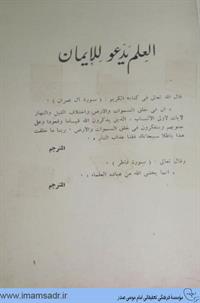 العلم يدعو للإيمان
قال الله تعالى في كتابه الكريم : ( سورة آل عمران ) :
« ان في خلق السموات والأرض واختلاف الليل والنهار
لآيات لأولى الألباب ، الذين يذكرون الله قياما وقعودا وعلى
جنوبهم ويتفكرون في خلق السموات والأرض ، ربنا ما خلقت
هذا باطلا سبحانك فقنا عذاب النار » .
المترجم
وقال تعالى : ( سورة فاطر )
« انما يخشى الله من عباده العلماء » .
المترجم
١
www.imamsadr.ir
موسسه فرهنگی تحقیقاتی امام موسی صدر